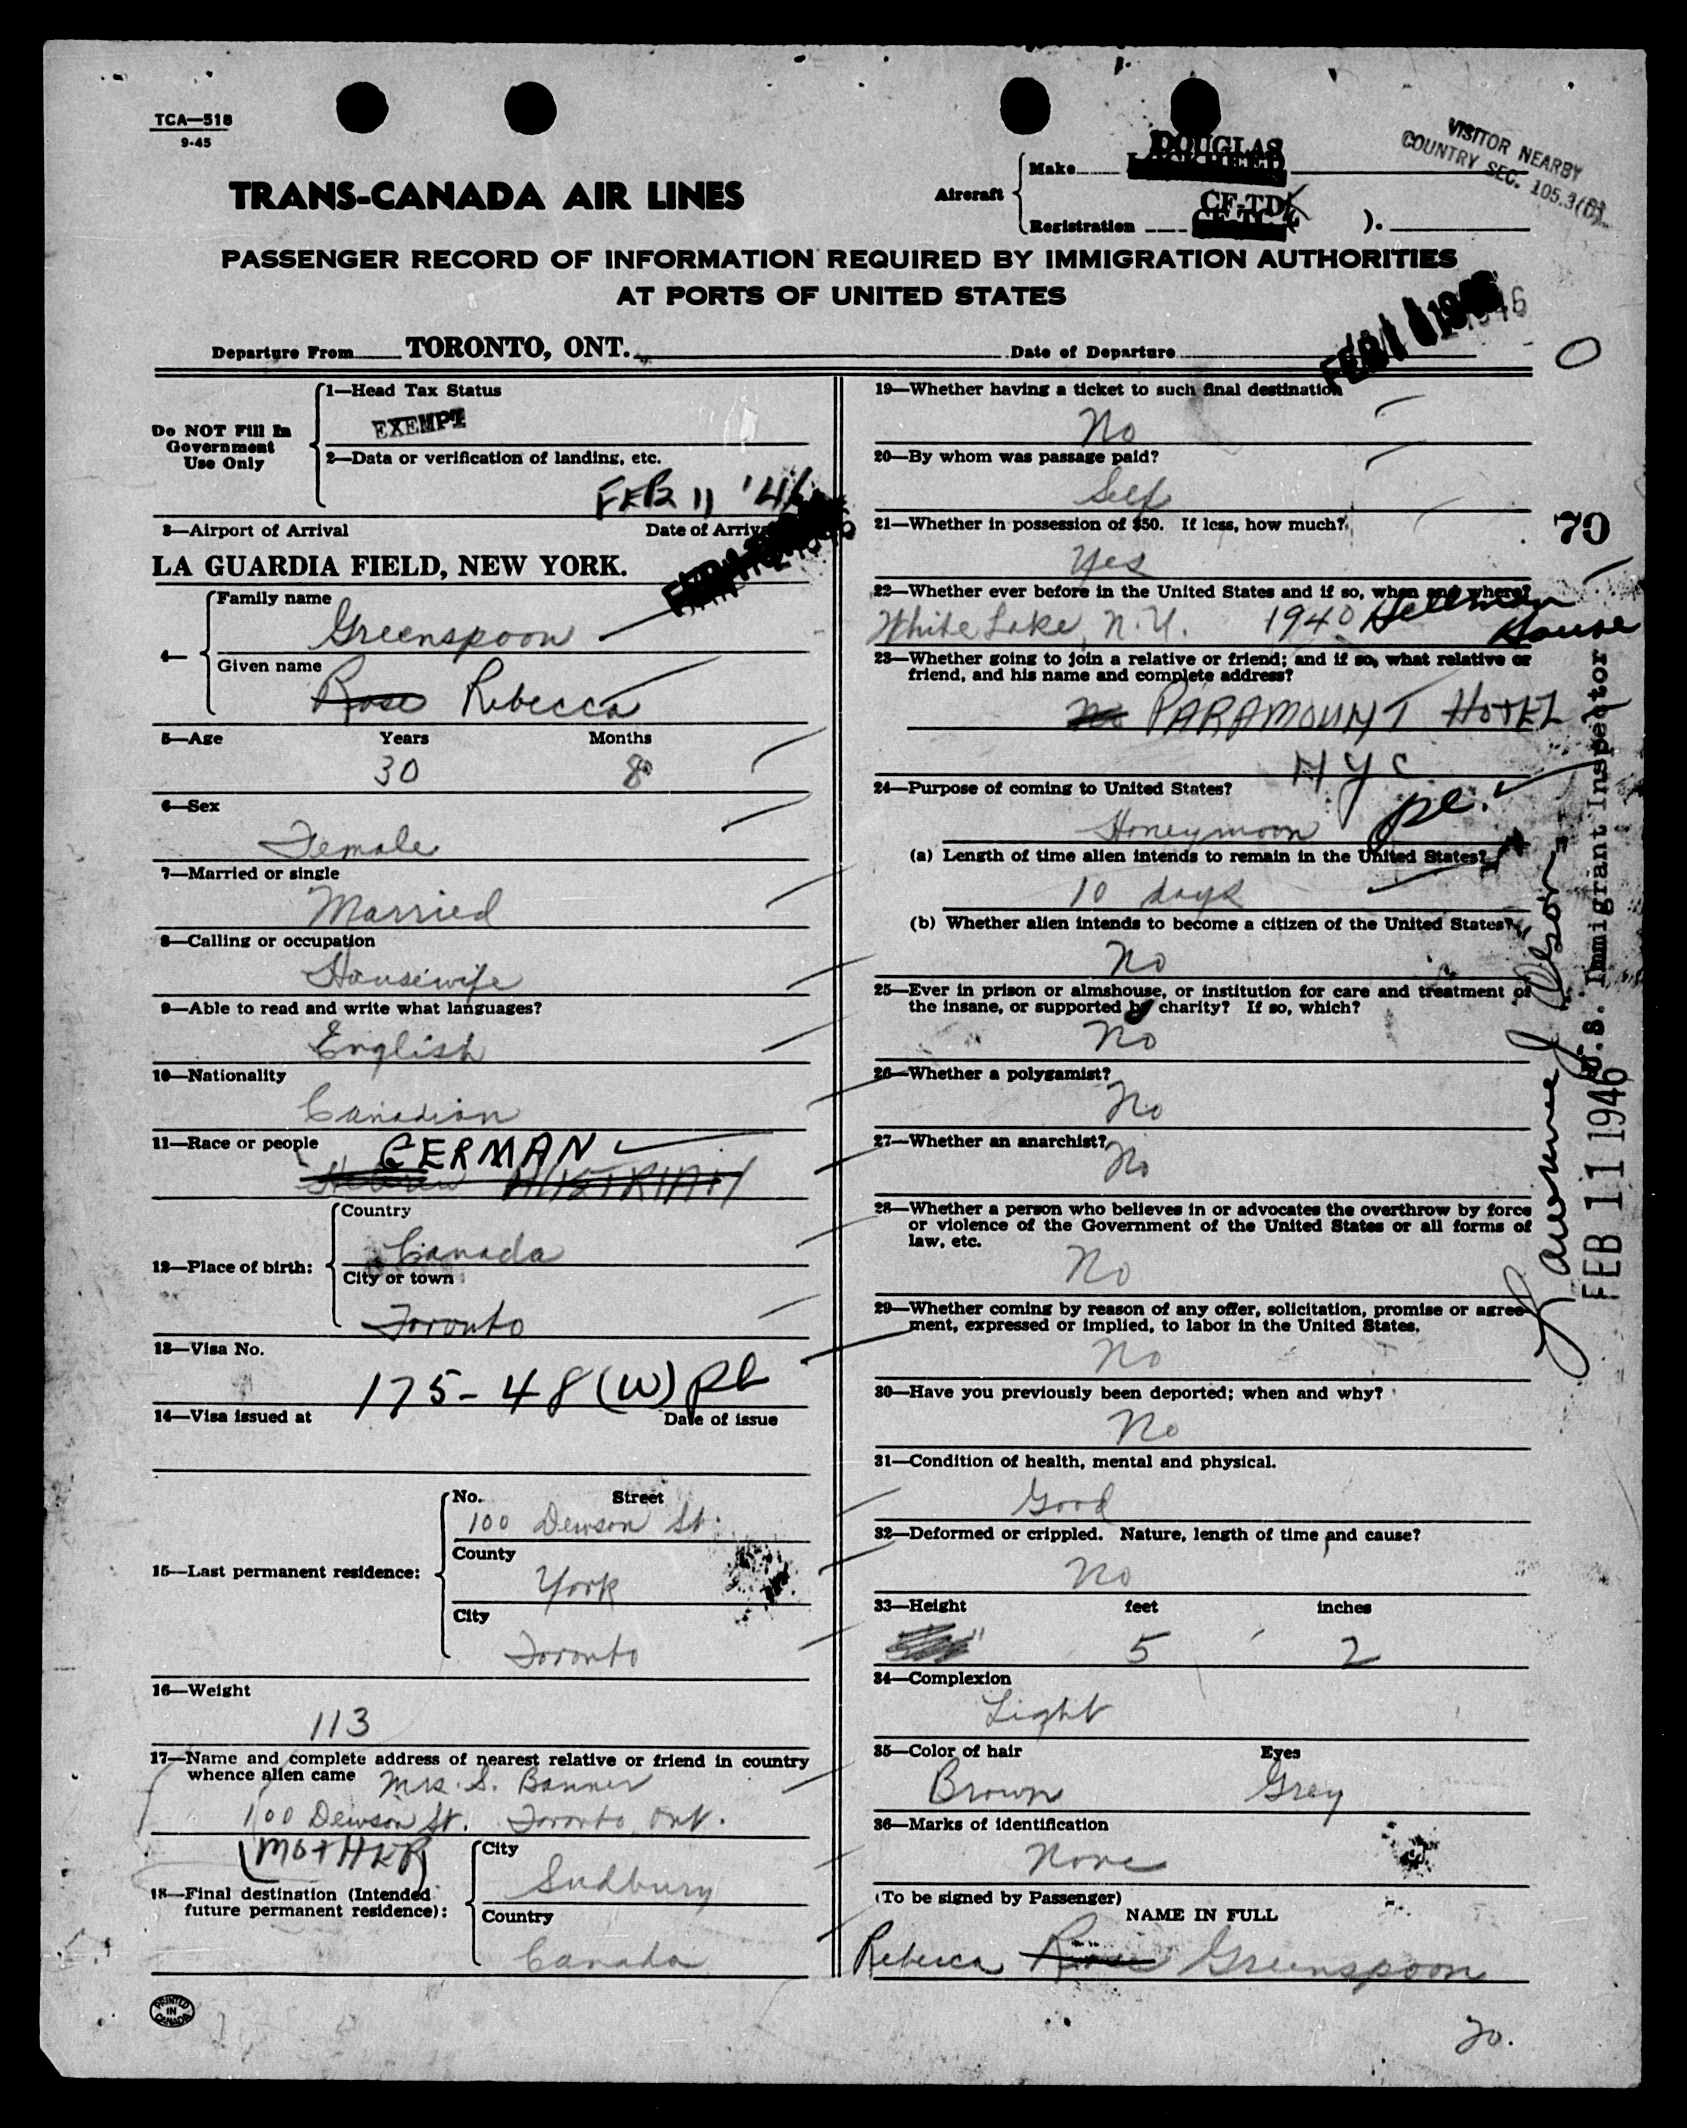 TCA—518
9-45
VISITOR NEARBY
COUNTRY SEC. 105.3(
TRANS-CANADA AIR LINES
Aircraft
Make
DOUGLAS
Registration
CF-TDK
).
PASSENGER RECORD OF INFORMATION REQUIRED BY IMMIGRATION AUTHORITIES
AT PORTS OF UNITED STATES
Departure From TORONTO, ONT. Date of Departure FEB 11 1946
Do NOT Fill In
Government
Use Only
1—Head Tax Status
EXEMPT
2—Data or verification of landing, etc.
FEB 11 '46
3—Airport of Arrival Date of Arrival
LA GUARDIA FIELD, NEW YORK.
4—
Family name
Greenspoon
Given name
Rose Rebecca
5—Age Years Months
30 8
6—Sex
Female
7—Married or single
Married
8—Calling or occupation
Housewife
9—Able to read and write what languages?
English
10—Nationality
Canadian
11—Race or people GERMAN
Hebrew AUSTRIAN
12—Place of birth:
Country
Canada
City or town
Toronto
13—Visa No.
175-48(W)
14—Visa issued at Date of issue
15—Last permanent residence:
No. Street
100 Dewson St.
County
York
City
Toronto
16—Weight
113
17—Name and complete address of nearest relative or friend in country
whence alien came Mrs. S. Banner
100 Dewson St. Toronto, Ont.
(MOTHER)
18—Final destination (Intended
future permanent residence):
City
Sudbury
Country
Canada
PRINTED
IN
CANADA
19—Whether having a ticket to such final destination
No
20—By whom was passage paid?
Self
21—Whether in possession of $50. If less, how much?
Yes
22—Whether ever before in the United States and if so, when and where?
White Lake, N.Y. 1940 Hellman
House
23—Whether going to join a relative or friend; and if so, what relative or
friend, and his name and complete address?
No PARAMOUNT HOTEL
NYC
24—Purpose of coming to United States?
Honeymoon
(a) Length of time alien intends to remain in the United States?
10 days
(b) Whether alien intends to become a citizen of the United States?
No
25—Ever in prison or almshouse, or institution for care and treatment of
the insane, or supported by charity? If so, which?
No
26—Whether a polygamist?
No
27—Whether an anarchist?
No
28—Whether a person who believes in or advocates the overthrow by force
or violence of the Government of the United States or all forms of
law, etc.
No
29—Whether coming by reason of any offer, solicitation, promise or agree-
ment, expressed or implied, to labor in the United States.
No
30—Have you previously been deported; when and why?
No
31—Condition of health, mental and physical.
Good
32—Deformed or crippled. Nature, length of time and cause?
No
33—Height feet inches
5 ' 2
34—Complexion
Light
35—Color of hair Eyes
Brown Grey
36—Marks of identification
None
(To be signed by Passenger)
NAME IN FULL
Rebecca Rose Greenspoon
70
U.S. Immigrant Inspector
FEB 11 1946
20.